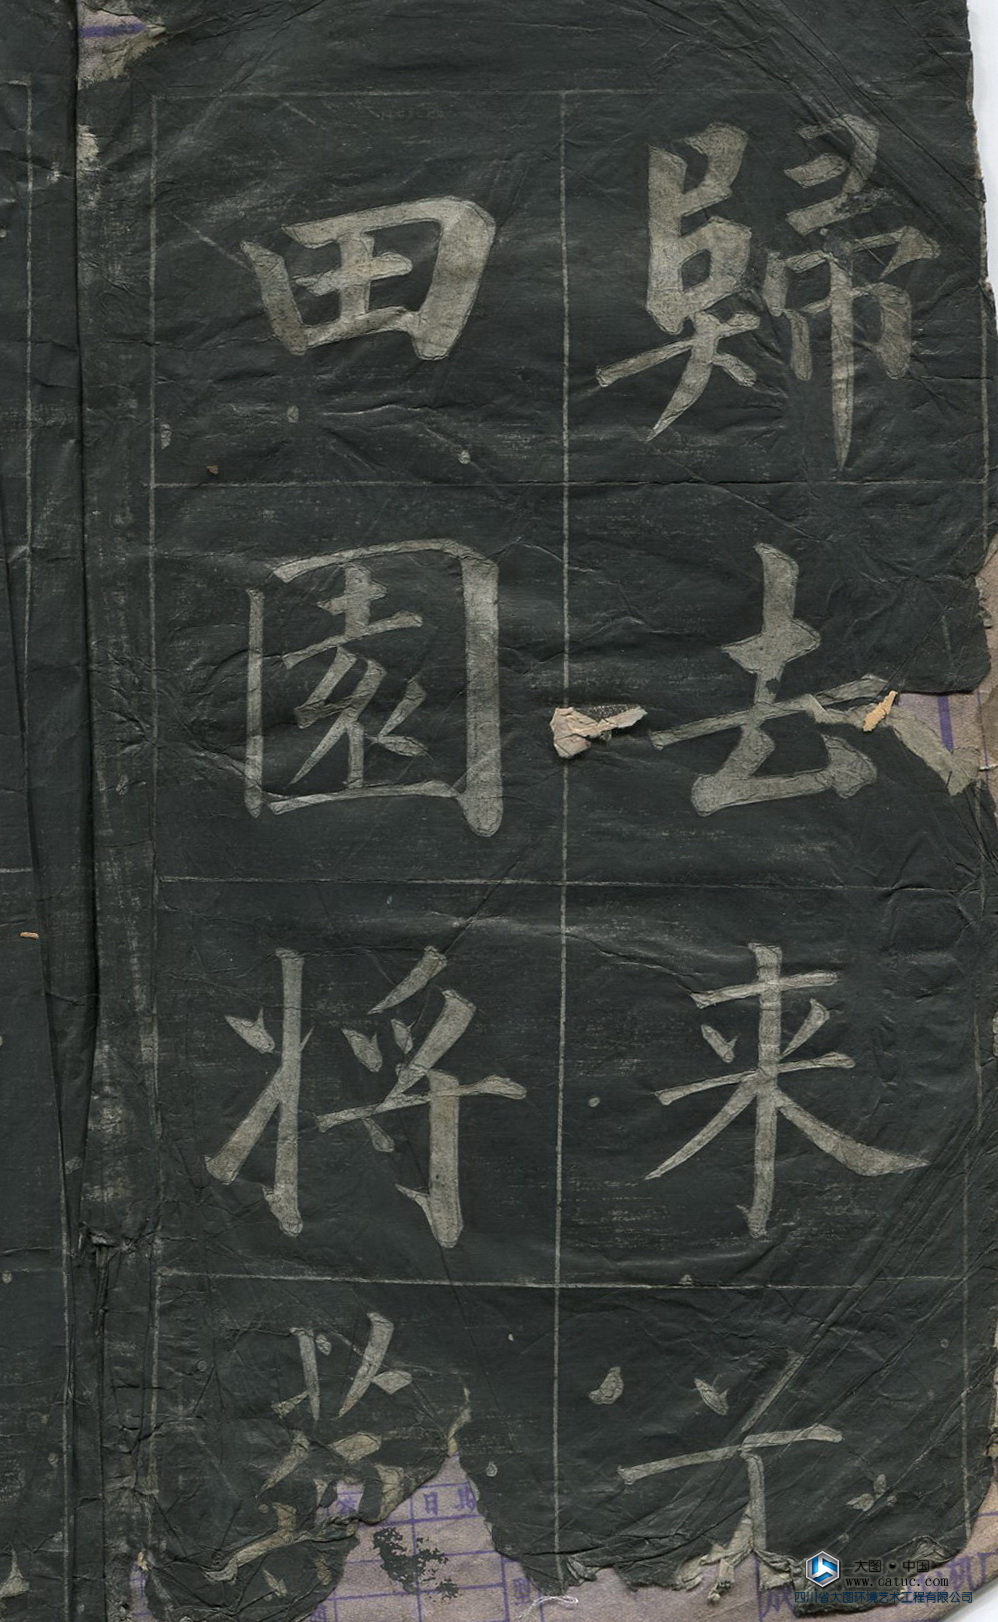 歸去来兮
田園将
日期
大图·中国
www.datuc.com
四川省大图环境艺术工程有限公司